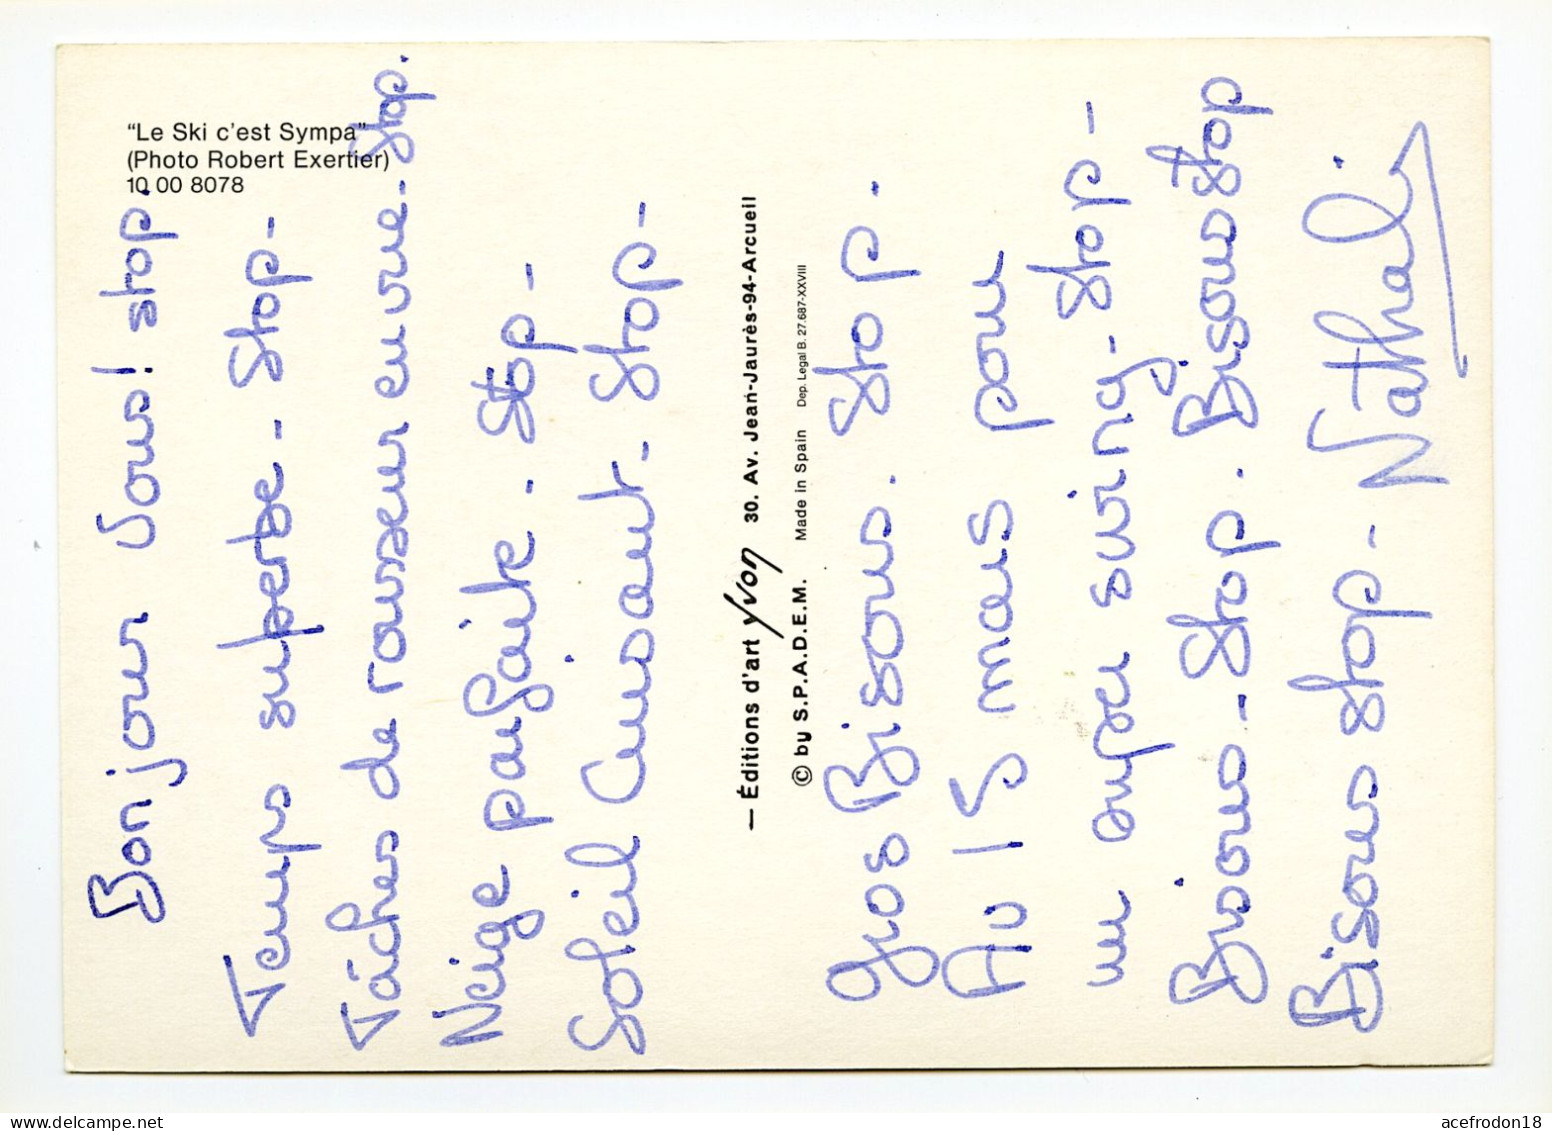 "Le Ski c'est Sympa"
(Photo Robert Exertier)
10 00 8078
Bonjour Vous! stop.
Temps superbe - Stop -
Tâches de rousseur en vue - Stop.
Neige parfaite - Stop -
Soleil Cuisant - Stop -
— Éditions d'art Yvon 30. Av. Jean-Jaurès-94-Arcueil
© by S.P.A.D.E.M. Made in Spain Dep. Legal B. 27.687-XXVIII
Gros Bisous. Stop.
Au 15 mars pour
un super swing - Stop -
Bisous - Stop. Bisous Stop
Bisous Stop - Nathali
acefrodon18